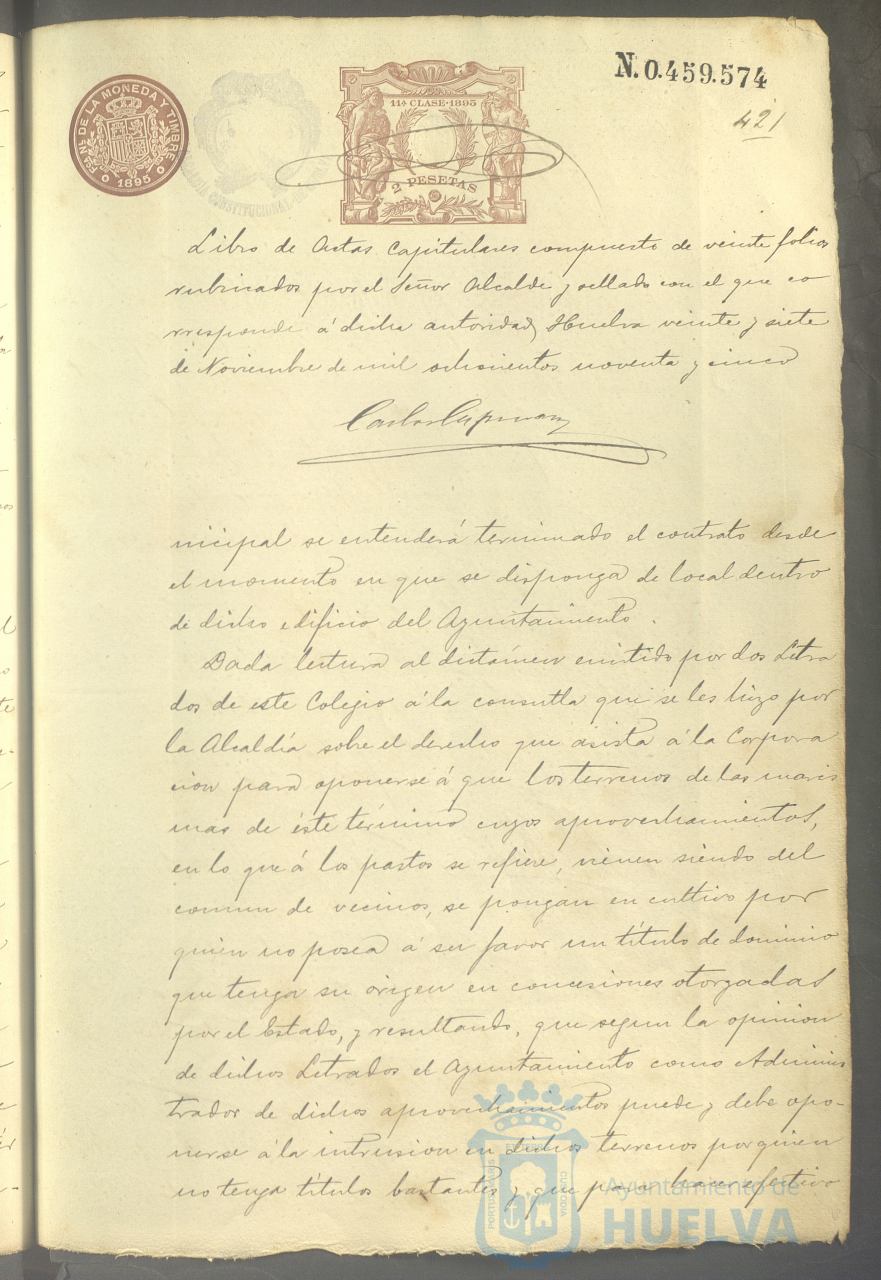 N. 0.459.574
421
Fª NL. DE LA MONEDA Y TIMBRE
1895
11ª CLASE-1895
2 PESETAS
CONSTITUCIONAL
Libro de Actas Capitulares compuesto de veinte folios
rubricados por el Señor Alcalde y sellado con el que co
rresponde á dicha autoridad, Huelva veinte y siete
de Noviembre de mil ochocientos noventa y cinco
Carlos
nicipal se entenderá terminado el contrato desde
el momento en que se disponga de local dentro
de dicho edificio del Ayuntamiento.
Dada lectura al dictámen emitido por dos Letra
dos de este Colegio á la consulta que se les hizo por
la Alcaldía sobre el derecho que asista á la Corpora
cion para oponerse á que los terrenos de las maris
mas de éste término cuyos aprovechamientos,
en lo que á los pastos se refiere, vienen siendo del
comun de vecinos, se pongan en cultivo por
quien no posea á su favor un título de dominio
que tenga su origen en concesiones otorgadas
por el Estado, y resultando, que segun la opinion
de dichos Letrados el Ayuntamiento como Adminis
trador de dichos aprovechamientos puede y debe opo-
nerse á la intrusion en dichos terrenos por quien
no tenga títulos bastantes y que para hacer efectivo
Ayuntamiento de
HUELVA
PORTUS MARIS
ET TERRE
CUSTODIA